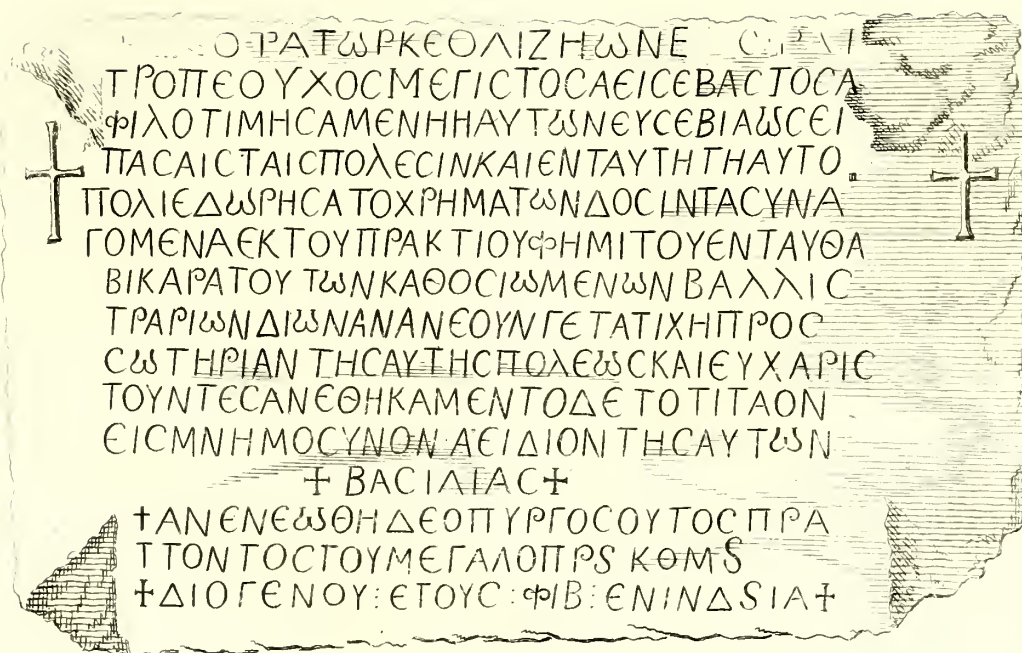 ΟΡΑΤωΡΚЄΟΛΙΖΗωΝΕ
ΤΡΟΠЄΟΥΧΟCΜЄΓΙCΤΟCΑЄΙCЄΒΑCΤΟCΑ
ΦΙΛΟΤΙΜΗCΑΜЄΝΗΗΑΥΤωΝЄΥCЄΒΙΑωCЄΙ
ΠΑCΑΙCΤΑΙCΠΟΛЄCΙΝΚΑΙЄΝΤΑΥΤΗΤΗΑΥΤΟ
ΠΟΛΙЄΔωΡΗCΑΤΟΧΡΗΜΑΤωΝΔΟCΙΝΤΑCΥΝΑ
ΓΟΜЄΝΑЄΚΤΟΥΠΡΑΚΤΙΟΥΦΗΜΙΤΟΥЄΝΤΑΥΘΑ
ΒΙΚΑΡΑΤΟΥΤωΝΚΑΘΟCΙωΜЄΝωΝΒΑΛΛΙC
ΤΡΑΡΙωΝΔΙωΝΑΝΑΝЄΟΥΝΓЄΤΑΤΙΧΗΠΡΟC
CωΤΗΡΙΑΝΤΗCΑΥΤΗCΠΟΛЄωCΚΑΙЄΥΧΑΡΙC
ΤΟΥΝΤЄCΑΝЄΘΗΚΑΜЄΝΤΟΔЄΤΟΤΙΤΛΟΝ
ЄΙCΜΝΗΜΟCΥΝΟΝΑЄΙΔΙΟΝΤΗCΑΥΤωΝ
✝ΒΑCΙΛΙΑC✝
✝ΑΝЄΝЄωΘΗΔЄΟΠΥΡΓΟCΟΥΤΟCΠΡΑ
ΤΤΟΝΤΟCΤΟΥΜЄΓΑΛΟΠΡS ΚΘΜS
✝ΔΙΟΓЄΝΟΥ:ЄΤΟΥC:ΦΙΒ:ЄΝΙΝΔSΙΑ✝